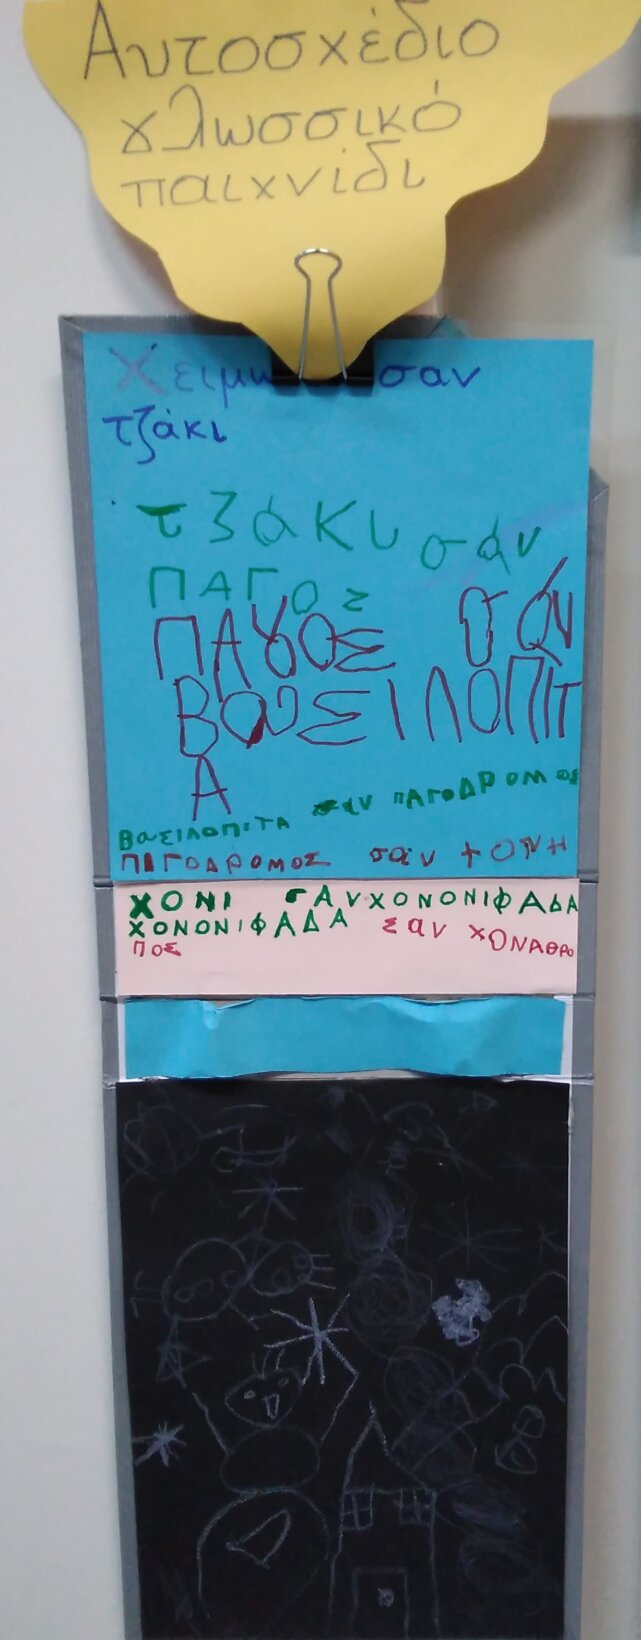 Αυτοσχέδιο
γλωσσικό
παιχνίδι
σαν
τζάκι
τζάκυ σάν
ΠΑΓΟΣ
ΠΑγΟΣ σάν
ΒαΣΙΛΟΠΙΤ
Α
ΒαΣΙΛΟΠΙΤΑ σαν πΑΓοΔΡομος
ΠΙΓΟΔΡΟΜΟΣ σαν
ΧΟΝΙ σΑν ΧΟΝΟΝΙΦΑΔΑ
ΧΟΝΟΝΙΦΑΔΑ Σαν χΟΝΑΘΡΟ
ΠΟΣ